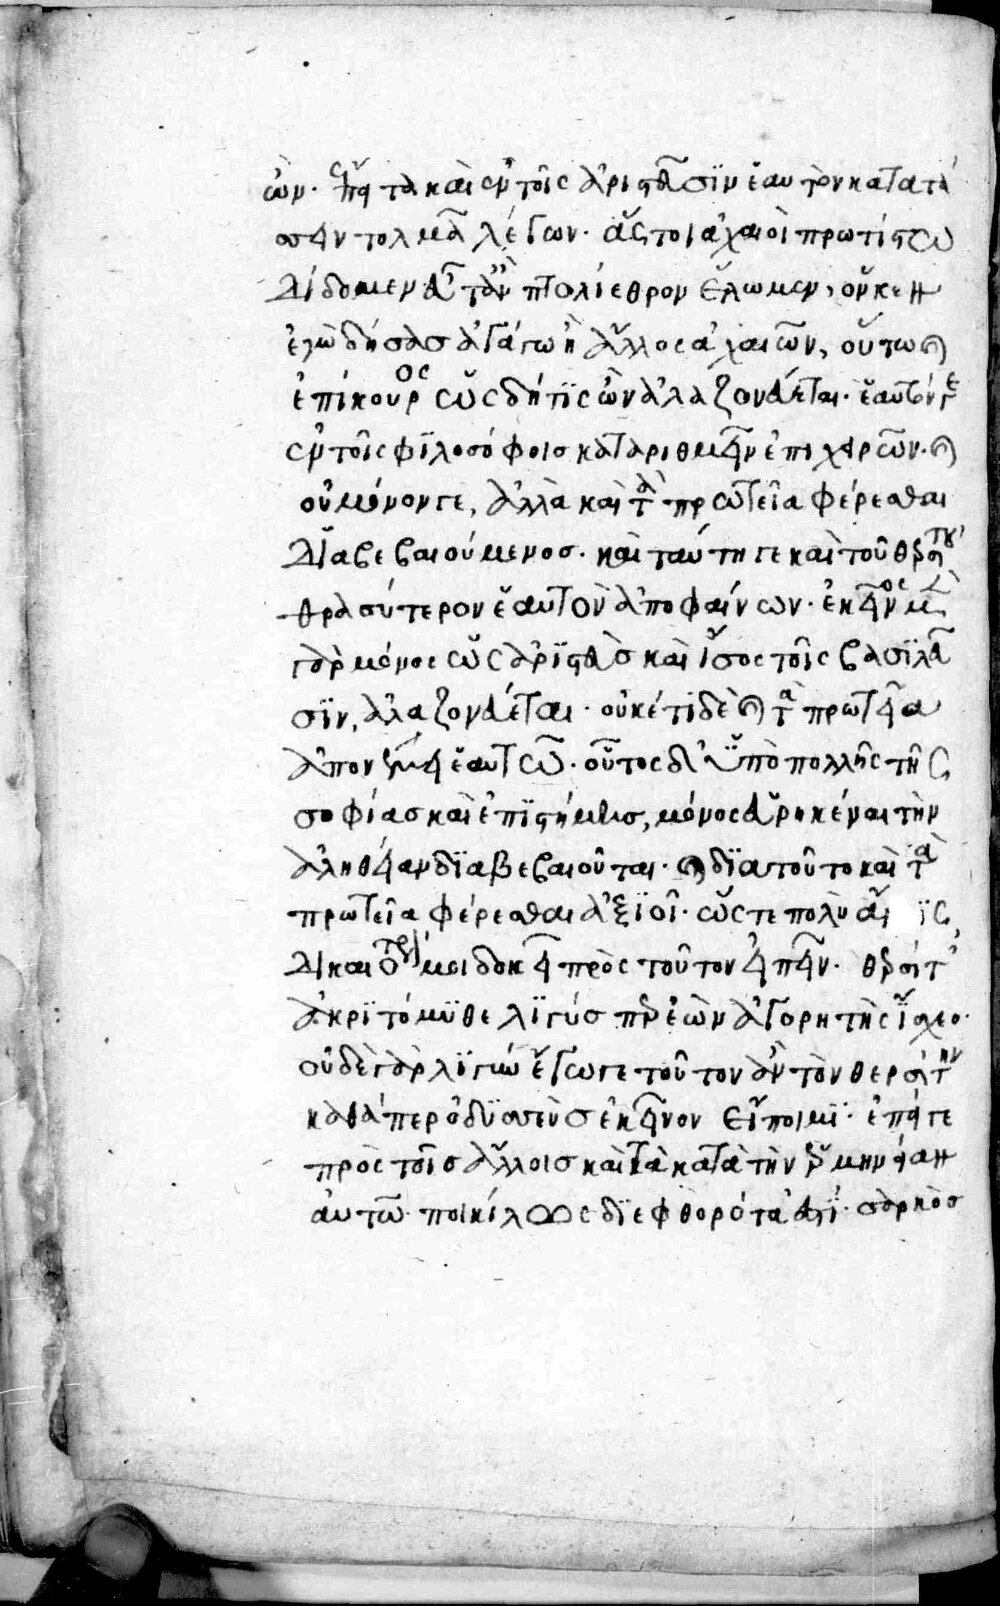 ὢν. ἔπειτα καὶ ἐν τοῖς ἀριστεῦσιν ἑαυτὸν κατατά
σσειν τολμᾷ λέγων. ἅς τοι ἀχαιοὶ πρωτίστω
δίδομεν εὖτ' ἂν πτολίεθρον ἕλωμεν, ὅν κεν
ἐγὼ δήσας ἀγάγω ἢ ἄλλος ἀχαιῶν, οὕτω καὶ
ἐπίκουρος ὡς δή τις ὢν ἀλαζονεύεται. ἑαυτόν γε
ἐν τοῖς φιλοσόφοις καταριθμεῖν ἐπιχειρῶν. καὶ
οὐ μόνον γε, ἀλλὰ καὶ τὰ πρωτεῖα φέρεσθαι
διαβεβαιούμενος. καὶ ταύτῃ γε καὶ τοῦ θερσίτου
θρασύτερον ἑαυτὸν ἀποφαίνων. ἐκεῖνος μὲν
γὰρ μόνος ὡς ἀριστεὺς καὶ ἴσος τοῖς βασιλεῦ
σιν, ἀλαζονεύεται. οὐκέτι δὲ καὶ τὰ πρωτεῖα
ἀπονέμει ἑαυτῷ. οὗτος δ' ὑπὸ πολλῆς τῆς
σοφίας καὶ ἐπιστήμης, μόνος εὑρηκέναι τὴν
ἀλήθειαν διαβεβαιοῦται. καὶ διατοῦτο καὶ τὰ
πρωτεῖα φέρεσθαι ἀξιοῖ. ὥστε πολὺ ἄν τις
δικαιότερόν μοι δοκεῖ πρὸς τοῦτον εἰπεῖν. θερσῖτ'
ἀκριτόμυθε λιγύς περ ἐὼν ἀγορητὴς ἴσχεο.
οὐδὲ γὰρ λιγὺν ἔγωγε τοῦτον ἂν τὸν θερσίτην
καθάπερ ὀδυσσεὺς ἐκεῖνον εἴποιμι. ἐπεί γε
πρὸς τοῖς ἄλλοις καὶ τὰ κατὰ τὴν ἑρμηνείαν
αὐτῷ ποικίλως διεφθορότα ἐστί. σαρκὸς